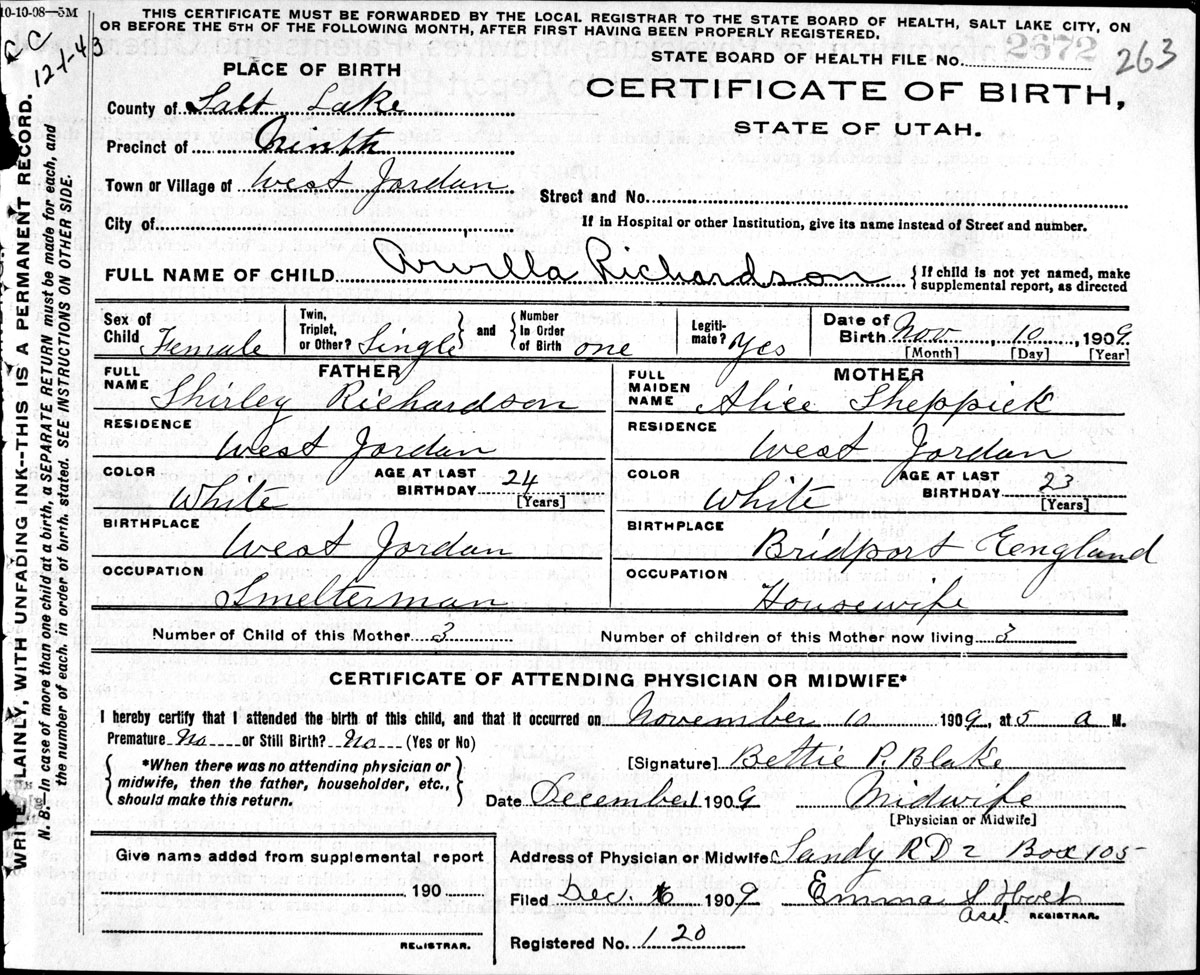 10-10-08—5M
THIS CERTIFICATE MUST BE FORWARDED BY THE LOCAL REGISTRAR TO THE STATE BOARD OF HEALTH, SALT LAKE CITY, ON
OR BEFORE THE 5TH OF THE FOLLOWING MONTH, AFTER FIRST HAVING BEEN PROPERLY REGISTERED.
CC
12-1-43
WRITE PLAINLY, WITH UNFADING INK--THIS IS A PERMANENT RECORD.
N. B.—In case of more than one child at a birth, a SEPARATE RETURN must be made for each, and
the number of each, in order of birth, stated. SEE INSTRUCTIONS ON OTHER SIDE.
STATE BOARD OF HEALTH FILE No. 2672
263
PLACE OF BIRTH
CERTIFICATE OF BIRTH,
STATE OF UTAH.
County of Salt Lake
Precinct of Ninth
Town or Village of West Jordan
Street and No.
City of
If in Hospital or other Institution, give its name instead of Street and number.
FULL NAME OF CHILD Arvilla Richardson {If child is not yet named, make
supplemental report, as directed
Sex of Child Female
Twin, Triplet, or Other? Single} and {Number In Order of Birth one
Legiti-mate? Yes
Date of Birth Nov 10, 1909
[Month] [Day] [Year]
FATHER
FULL NAME Shirley Richardson
RESIDENCE
West Jordan
COLOR White AGE AT LAST BIRTHDAY 24 [Years]
BIRTHPLACE
West Jordan
OCCUPATION
Smelterman
MOTHER
FULL MAIDEN NAME Alice Sheppick
RESIDENCE
West Jordan
COLOR White AGE AT LAST BIRTHDAY 23 [Years]
BIRTHPLACE
Bridport Eengland
OCCUPATION
Housewife
Number of Child of this Mother 3 Number of children of this Mother now living 3
CERTIFICATE OF ATTENDING PHYSICIAN OR MIDWIFE*
I hereby certify that I attended the birth of this child, and that it occurred on November 10 1909, at 5 a M.
Premature No or Still Birth? No (Yes or No)
{*When there was no attending physician or
midwife, then the father, householder, etc.,
should make this return.}
[Signature] Bettie P. Blake
Date December 1 1909 Midwife
[Physician or Midwife]
Give name added from supplemental report
190
REGISTRAR.
Address of Physician or Midwife Sandy RD 2 Box 105
Filed Dec. 6 1909 Emma S
REGISTRAR.
Registered No. 120